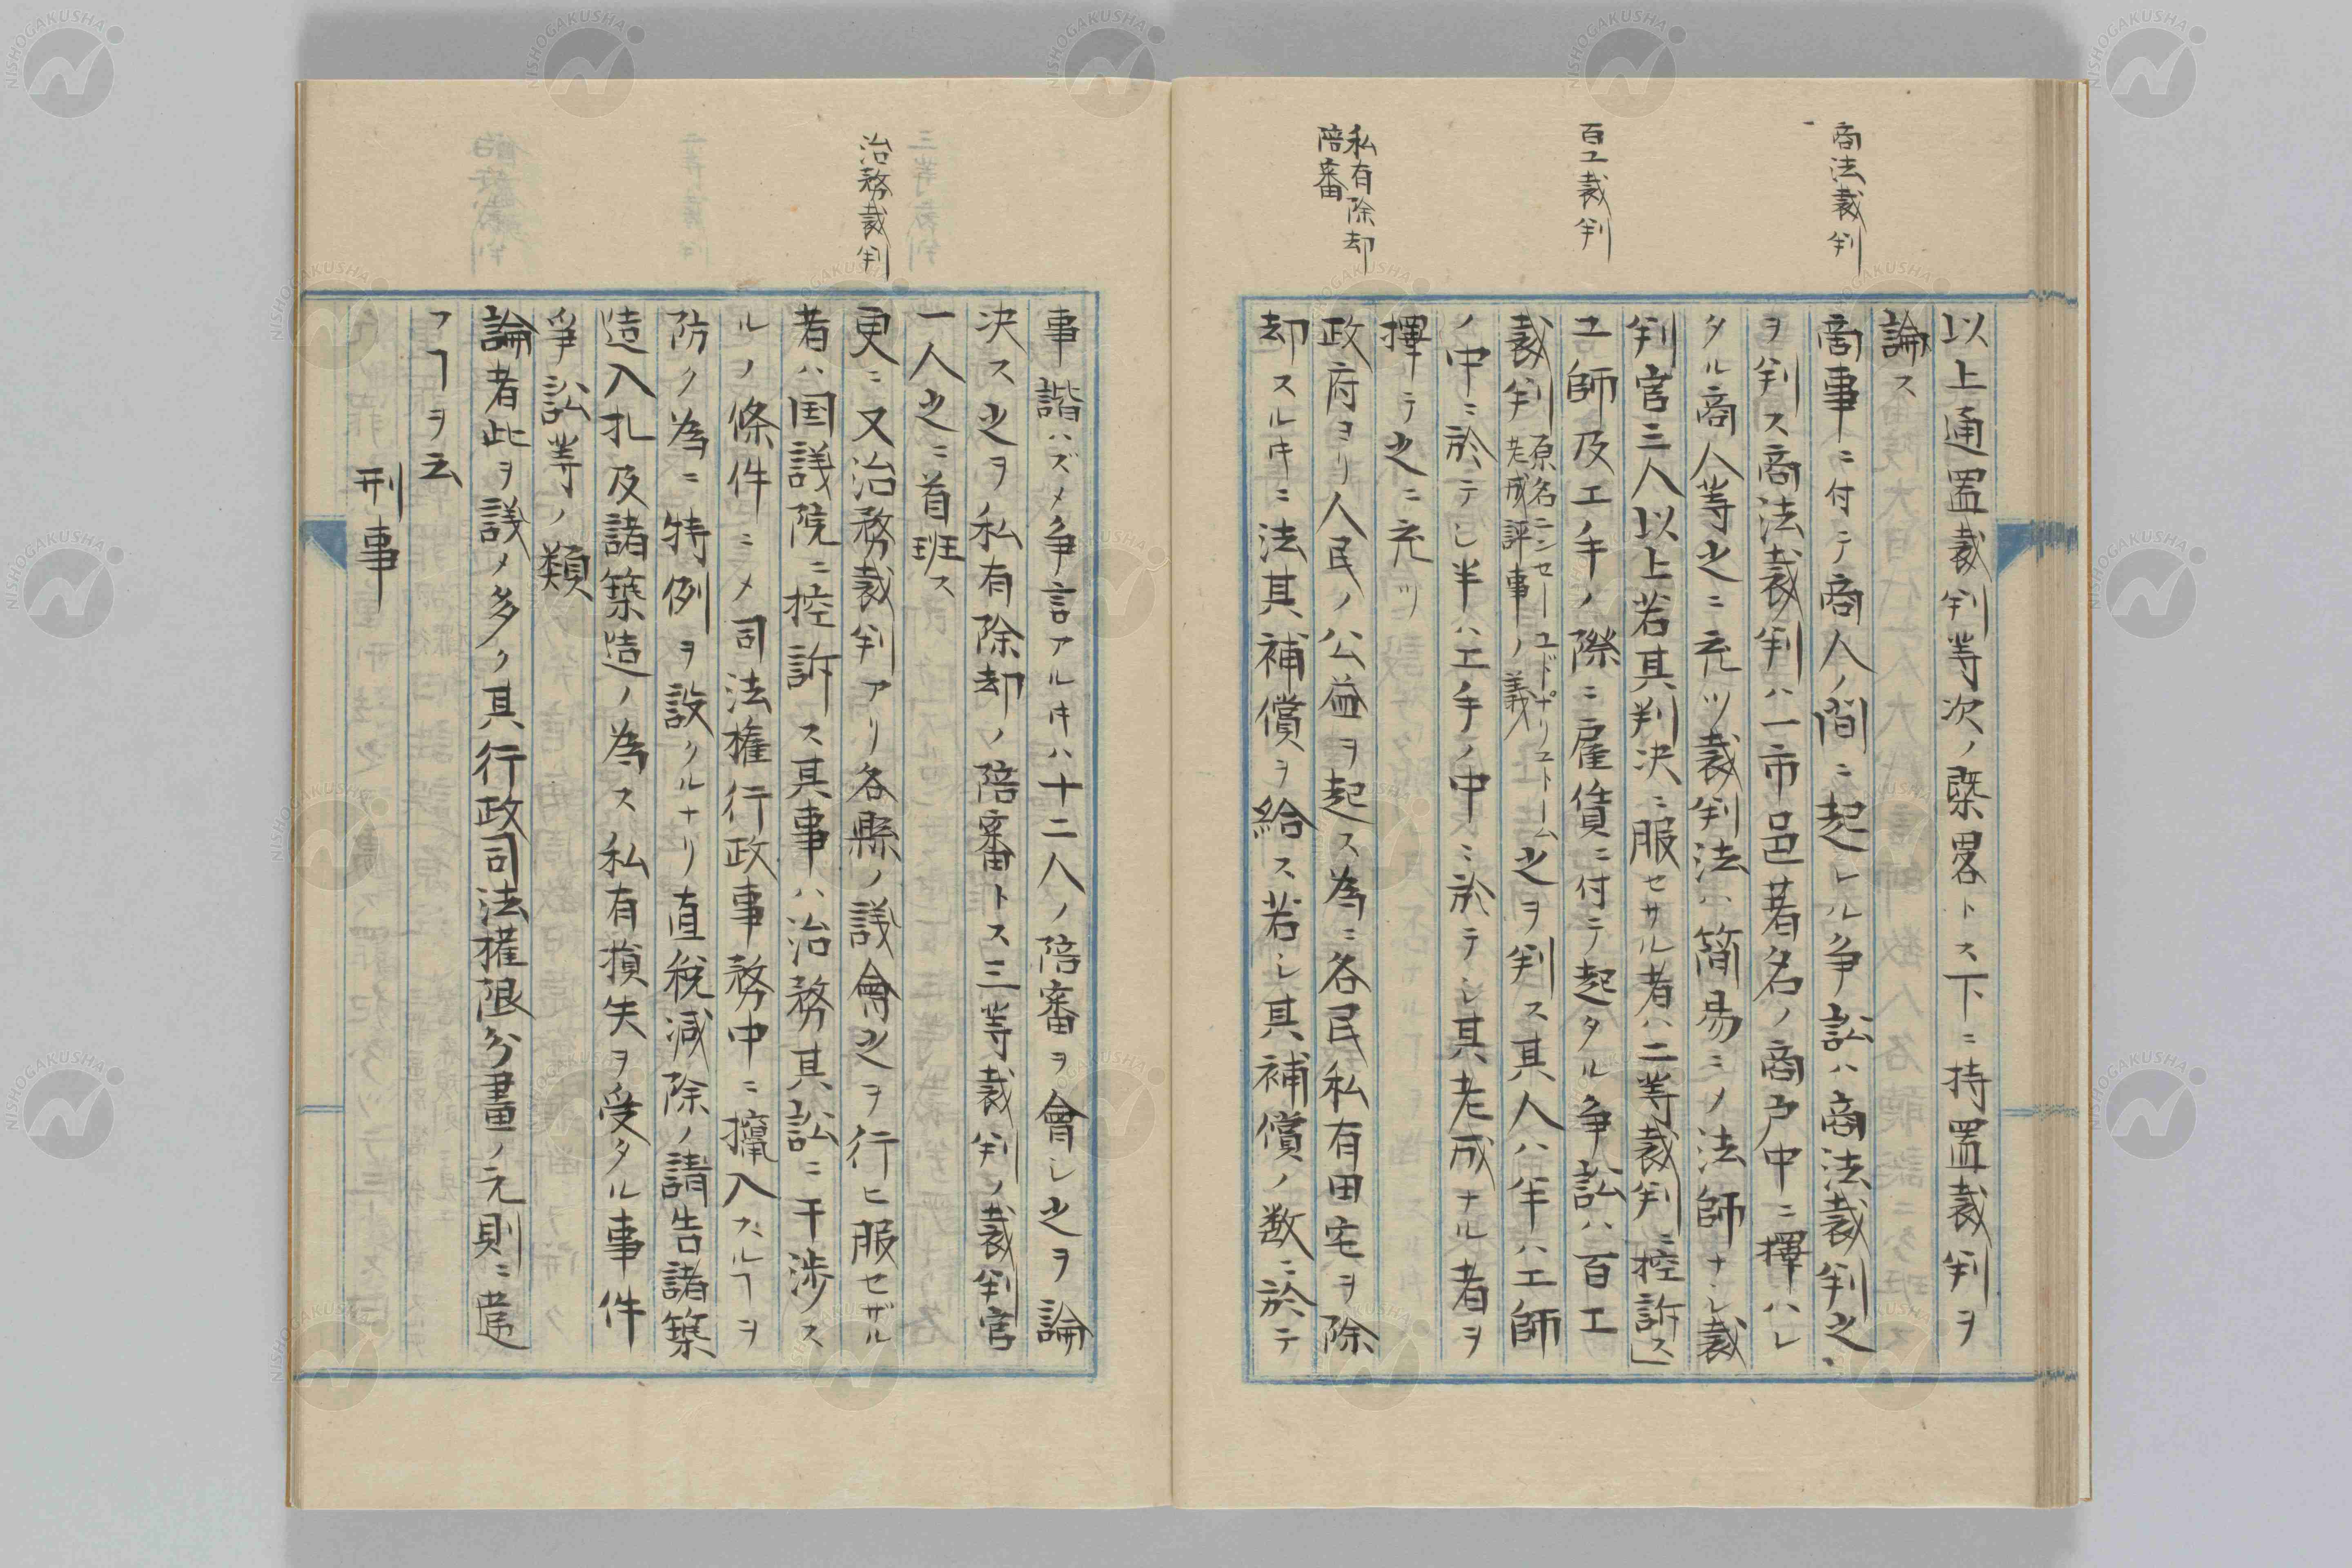 商法裁判
百工裁判
私有除却
陪審
以上通置裁判等次ノ槩畧トス下ニ持置裁判ヲ
論ス
商事ニ付テ商人ノ間ニ起レル争訟ハ商法裁判之
ヲ判ス商法裁判ハ一市邑著名ノ商戸中ニ擇ハレ
タル商人等之ニ充ツ裁判法ハ簡易ニメ法師ナシ裁
判官三人以上若其判決ニ服セサル者ハ二等裁判ニ控訴ス」
工師及工手ノ際ニ雇賃ニ付テ起タル争訟ハ百工
裁判原名コンセーユドプリュドーム
老成評事ノ義之ヲ判ス其人ハ半ハ工師
ノ中ニ於テシ半ハ工手ノ中ニ於テシ其老成ナル者ヲ
擇テ之ニ充ツ
政府ヨリ人民ノ公益ヲ起ス為ニ各民私有田宅ヲ除
却スルキニ法其補償ヲ給ス若シ其補償ノ数ニ於テ
治務裁判
事諧ハズメ争言アルキハ十二人ノ陪審ヲ會シ之ヲ論
決ス之ヲ私有除却ノ陪審トス三等裁判ノ裁判官
一人之ニ首班ス
更ニ又治務裁判アリ各縣ノ議會之ヲ行ヒ服セザル
者ハ国議院ニ控訴ス其事ハ治務其訟ニ干渉ス
ルノ條件ニメ司法権行政事務中ニ攙入スルヿヲ
防ク為ニ特例ヲ設クルナリ直税減除ノ請告諸築
造入札及諸築造ノ為ス私有損失ヲ受タル事件
爭訟等ノ類
論者此ヲ議メ多ク其行政司法権限分畫ノ元則ニ違
フヿヲ云
刑事